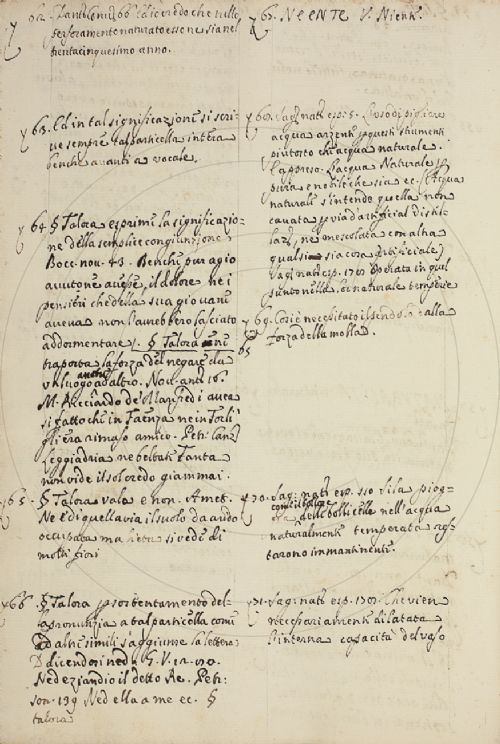 62. Dant. Uld in credo che nello
sersaramente naturato essere sia nel
trentacinquesimo anno.
63. Ed in tal significazioni si scri-
ve sempre tal particella intera
benche avanti a vocale.
64. § Talora esprime la significazio-
ne della semplice congiunzione
Bocc. nov. 43. Benche pur agio
avuto ne avesse, il dolore ne i
pensieri che della sua giovani
aveva non l'avrebbero lasciato
addormentare. § Talora
trasporta la forza del negare da
un luogo ad altro. Nov. ant. 16.
M. Ricciardo de' Manfredi avea
si fatto che in Faenza ne in Forlì
gli era rimaso amico. Petr. Canz.
Leggiadria ne beltate tanta
non vide il sole credo giammai.
65. § Talora vale e non. Amet.
Ne è di quella via il suolo da ando
occupata ma lieta si vede di
molti fiori
66. § Talora per sostentamento del-
la pronunzia a tal particella come
ad altri simili s'aggiunse la lettera
D dicendosi ned. G. V. 12.
Ned eziandio il detto Re. Petr.
son. 139 Ned ella a me ec. §
talora
67. NEENTE V. Niente.
68. Sag. nat. esp. 5. L'uso di pigliare
acqua arzente per questi strumenti
piuttosto che acqua naturale.
E appresso. L'acqua Naturale per
pura e nobile che sia ec. (Acqua
naturale s'intende quella non
cavata per via d'artificial distil-
laz., ne mescolata con altra
qualsisia cosa artificiale)
Sag. nat. esp. 170.
sunto nella, e naturale temperie
69. Così e necessitato il senso dalla
forza della molla.
65
70. Sag. nat. esp. 110 Fila piog-
come il salire
delle bollicelle nell'acqua
naturalmente temperata res-
tarono immantinente.
71. Sag. nat. esp. 170. Che vien
necessariamente dilatata
l'interna capacità del vaso